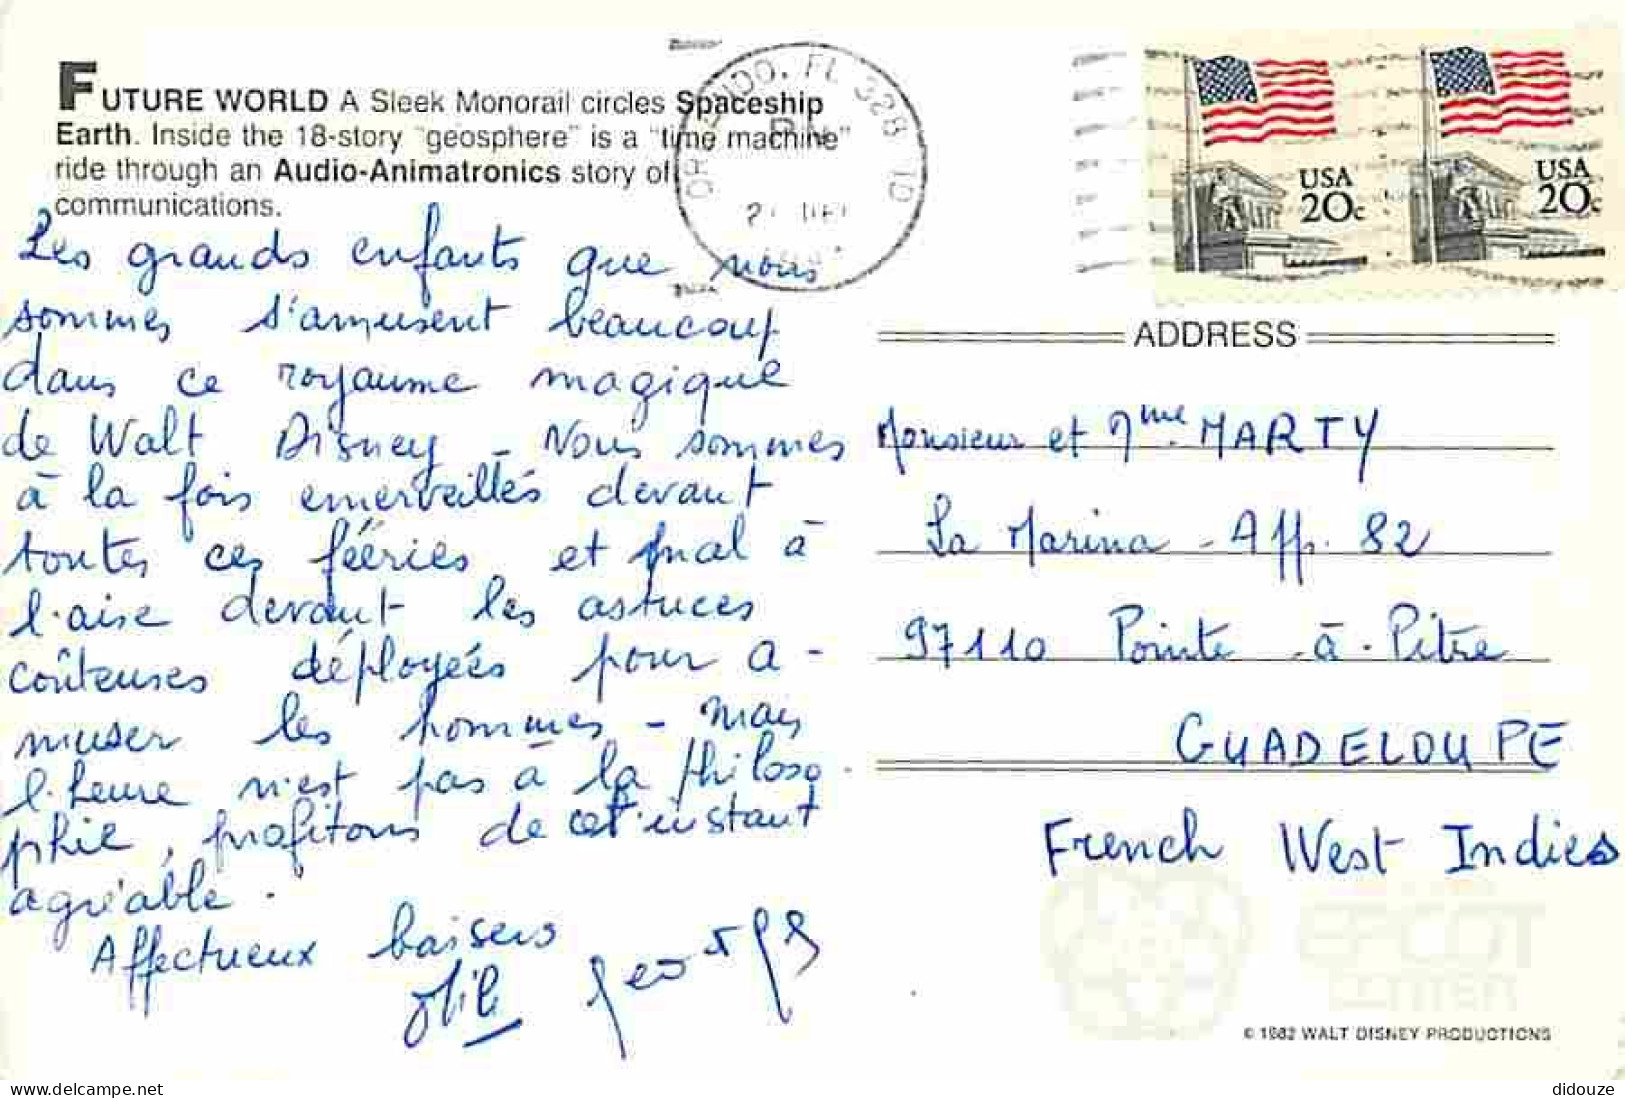 FUTURE WORLD A Sleek Monorail circles Spaceship
Earth. Inside the 18-story "geosphere" is a "time machine"
ride through an Audio-Animatronics story of
communications.
ORLANDO, FL 328
PM
USA
20c
USA
20c
Les grands enfants que nous
sommes s'amusent beaucoup
dans ce royaume magique
de Walt Disney - Nous sommes
à la fois emerveillés devant
toutes ces féeries et mal à
l'aise devant les astuces
coûteuses déployées pour a-
muser les hommes - Mais
l'heure n'est pas à la philoso-
phie, profitons de cet instant
agréable.
Affectueux baisers
Georges
ADDRESS
Monsieur et Mme MARTY
La Marina - App. 82
97110 Pointe-à-Pitre
GUADELOUPE
French West Indies
EPCOT
CENTER
© 1982 WALT DISNEY PRODUCTIONS
www.delcampe.net
didouze